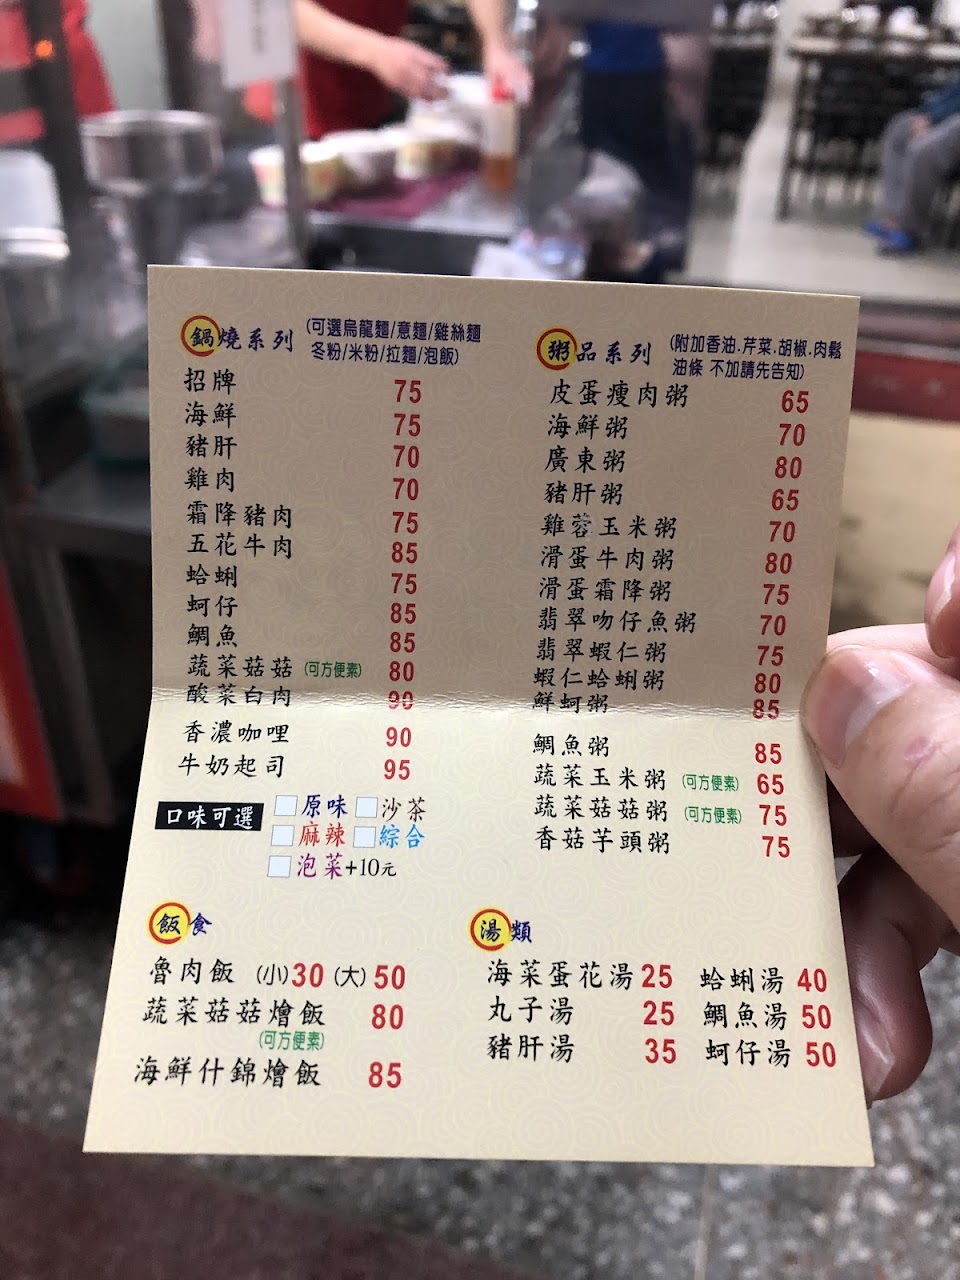 鍋燒系列 (可選烏龍麵/意麵/雞絲麵
冬粉/米粉/拉麵/泡飯)
招牌 75
海鮮 75
豬肝 70
雞肉 70
霜降豬肉 75
五花牛肉 85
蛤蜊 75
蚵仔 85
鯛魚 85
蔬菜菇菇 (可方便素) 80
酸菜白肉 90
香濃咖哩 90
牛奶起司 95
口味可選 原味 沙茶
麻辣 綜合
泡菜+10元
粥品系列 (附加香油.芹菜.胡椒.肉鬆
油條 不加請先告知)
皮蛋瘦肉粥 65
海鮮粥 70
廣東粥 80
豬肝粥 65
雞蓉玉米粥 70
滑蛋牛肉粥 80
滑蛋霜降粥 75
翡翠吻仔魚粥 70
翡翠蝦仁粥 75
蝦仁蛤蜊粥 80
鮮蚵粥 85
鯛魚粥 85
蔬菜玉米粥 (可方便素) 65
蔬菜菇菇粥 (可方便素) 75
香菇芋頭粥 75
飯食
魯肉飯 (小)30 (大)50
蔬菜菇菇燴飯 80
(可方便素)
海鮮什錦燴飯 85
湯類
海菜蛋花湯 25 蛤蜊湯 40
丸子湯 25 鯛魚湯 50
豬肝湯 35 蚵仔湯 50